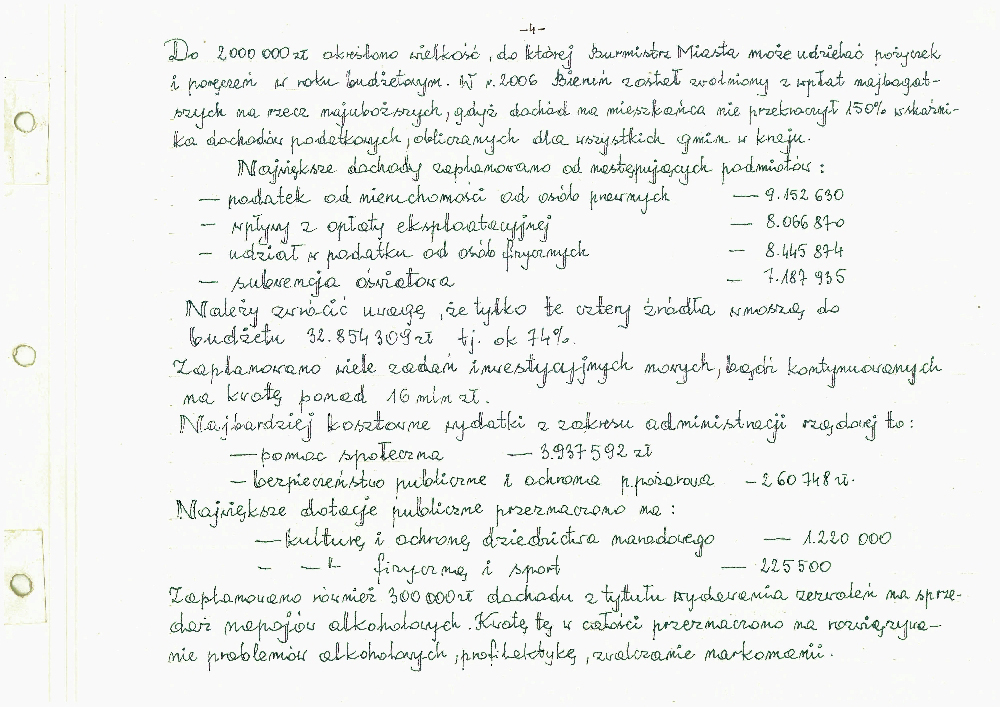 -4-
Do 2000 000 zł określono wielkość, do której Burmistrz Miasta może udzielać pożyczek
i poręczeń w roku budżetowym. W r. 2006 Bieruń został zwolniony z wpłat najbogat-
szych na rzecz najuboższych, gdyż dochód na mieszkańca nie przekroczył 150% wskaźni-
ka dochodów podatkowych, obliczanych dla wszystkich gmin w kraju.
Największe dochody zaplanowano od następujących podmiotów :
— podatek od nieruchomości od osób prawnych — 9.152 630
— wpływy z opłaty eksploatacyjnej — 8.066 870
— udział w podatku od osób fizycznych — 8.445 874
— subwencja oświatowa — 7.187 935
Należy zwrócić uwagę, że tylko te cztery źródła wnoszą do
budżetu 32.854 309 zł tj. ok 74%.
Zaplanowano wiele zadań inwestycyjnych nowych, bądź kontynuowanych
na kwotę ponad 16 mln zł.
Najbardziej kosztowne wydatki z zakresu administracji rządowej to :
— pomoc społeczna — 3.937 592 zł
— bezpieczeństwo publiczne i ochrona p.pożarowa — 260 748 zł.
Największe dotacje publiczne przeznaczono na :
— kulturę i ochronę dziedzictwa narodowego — 1.220 000
— — " — fizyczną i sport — 225 500
Zaplanowano również 300 000 zł dochodu z tytułu wydawania zezwoleń na sprze-
daż napojów alkoholowych. Kwotę tę w całości przeznaczono na rozwiązywa-
nie problemów alkoholowych, profilaktykę, zwalczanie narkomanii.